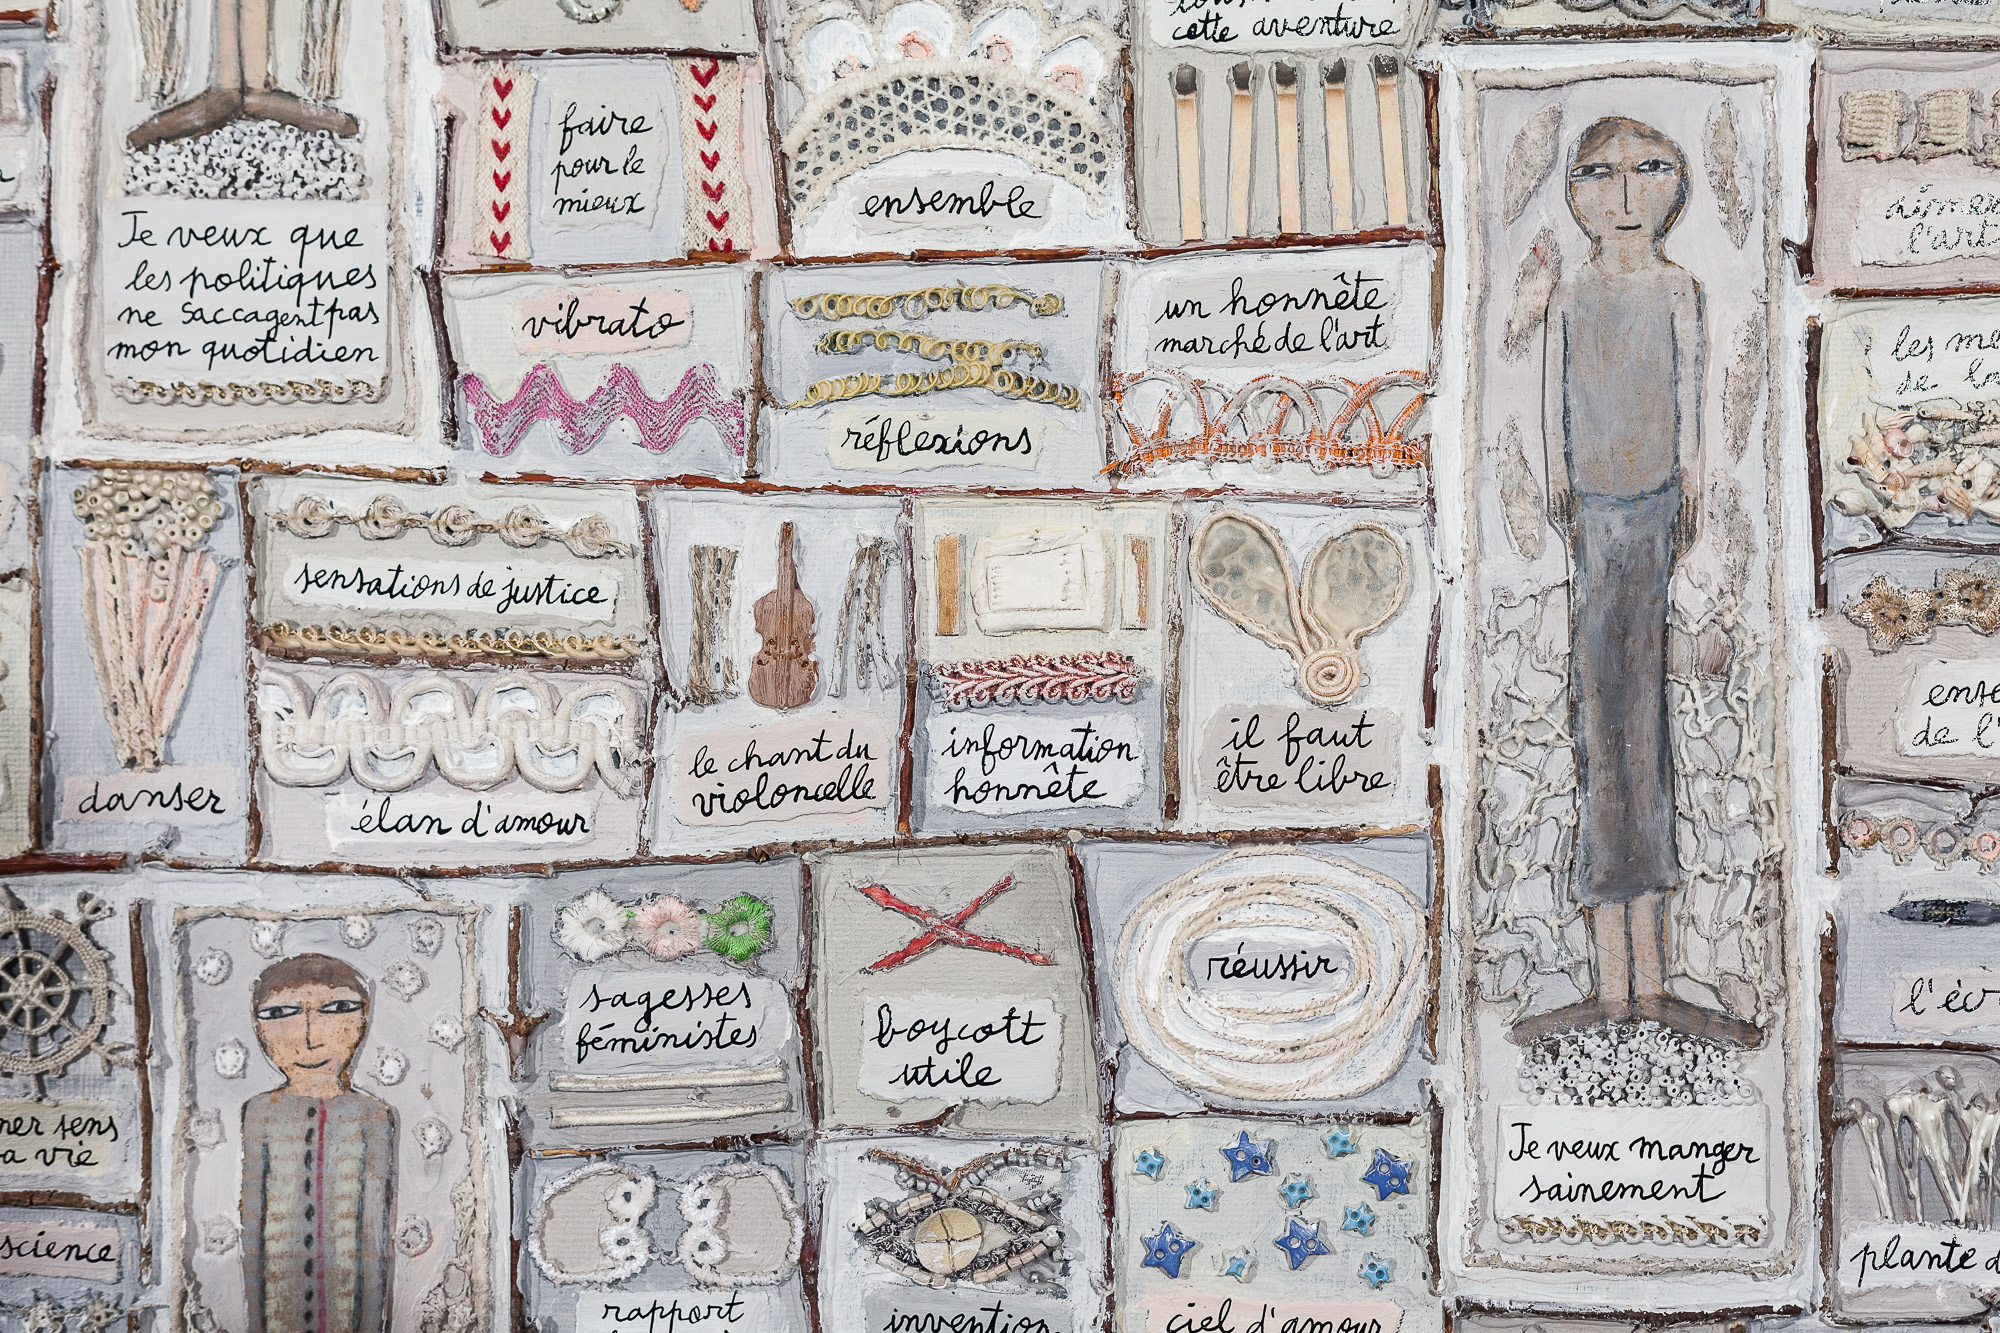 cette aventure
faire
pour le
mieux
ensemble
Je veux que
les politiques
ne saccagent pas
mon quotidien
vibrato
réflexions
un honnête
marché de l'art
aimer
l'art
les
de la
sensations de justice
danser
élan d'amour
le chant du
violoncelle
information
honnête
il faut
être libre
de l'
sagesses
féministes
boycott
utile
réussir
sens
a vie
science
Je veux manger
sainement
plante d
rapport
invention
ciel d'amour